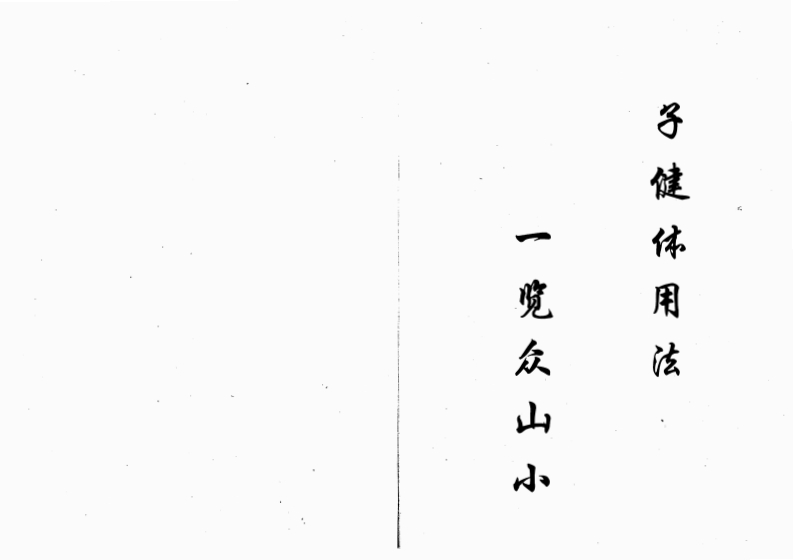 子健体用法
一览众山小